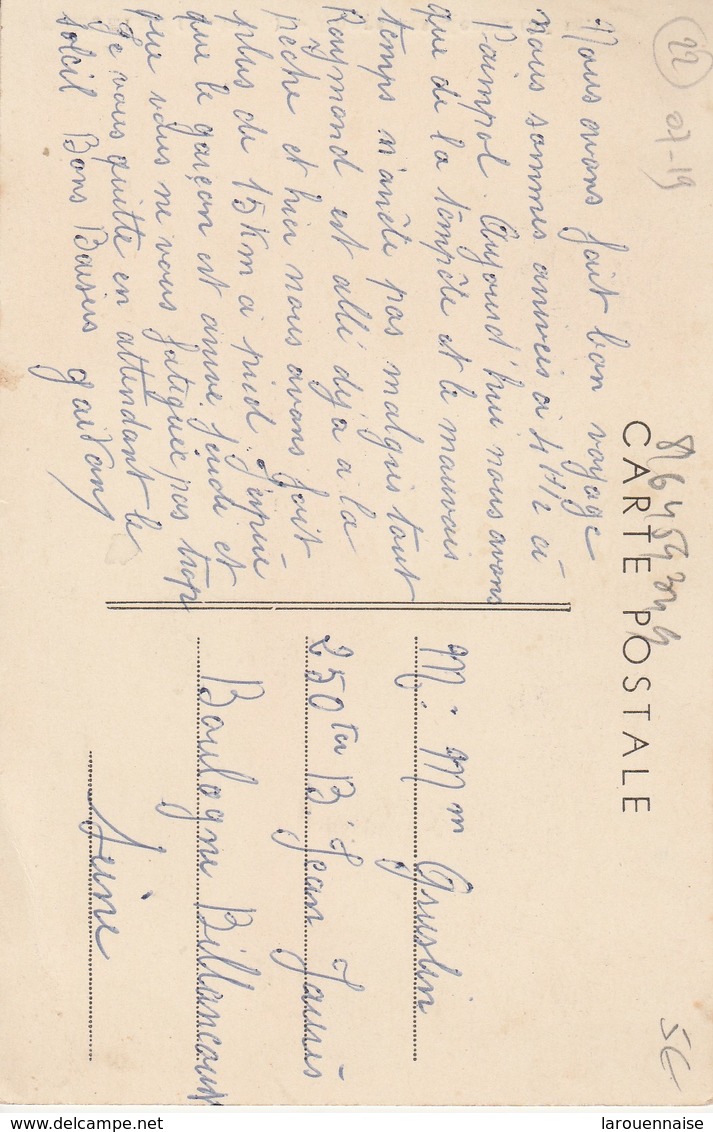 22
07-19
Nous avons fait bon voyage
nous sommes arrivés à 4 H 1/2 à
Paimpol. Aujourd'hui nous avons
que de la tempête et le mauvais
temps n'arrête pas malgrés tout
Raymond est allé déja a la
pêche et hier nous avons fait
plus de 15 Km a pied. J'espère
que le garçon est arrivé jeudi et
que vous ne vous fatiguée pas trop
Je vous quitte en attendant le
soleil Bons Baisers
CARTE POSTALE
Mr Mm Gruslin
250 ter Bd Jean Jaurès
Boulogne Billancourt
Seine
5€
larouennaise